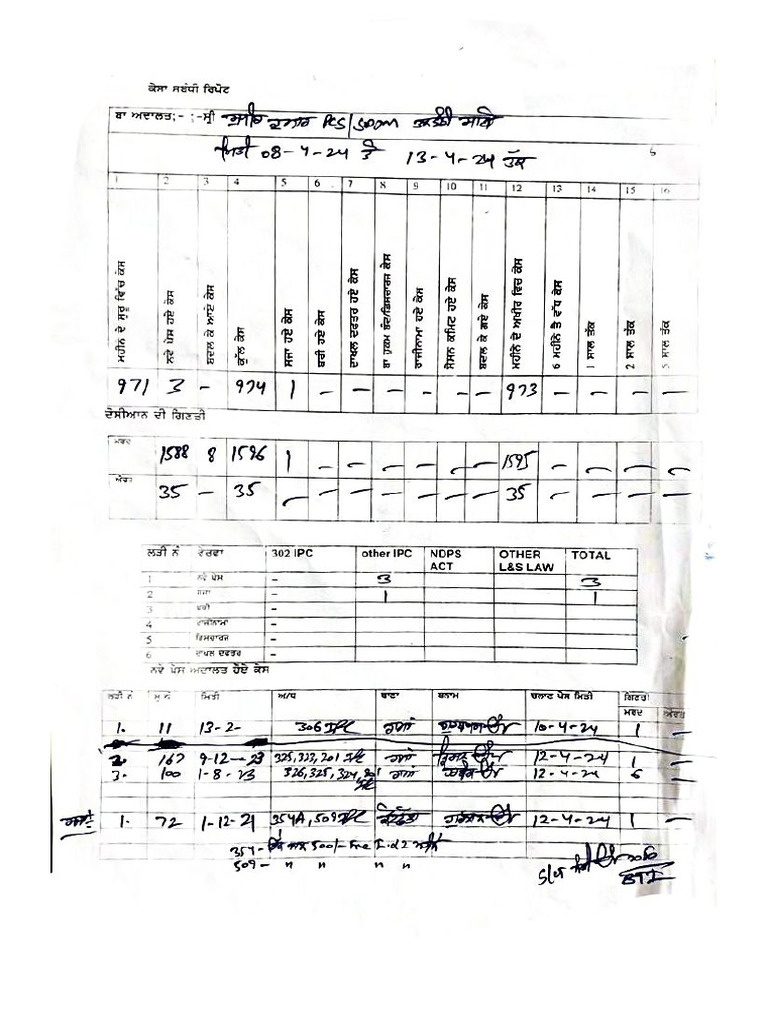 ਕੇਸਾ ਸਬੰਧੀ ਰਿਪੋਟ
ਬਾ ਅਦਾਲਤ;- ;-ਸ੍ਰੀ PCS/SDJM
ਮਿਤੀ 08-4-24 ਤੋਂ 13-4-24 ਤੱਕ
1 2 3 4 5 6 7 8 9 10 11 12 13 14 15 16
ਮਹੀਨੇ ਦੇ ਸੁਰੂ ਵਿੱਚ ਕੇਸ
ਨਵੇ ਪੇਸ ਹੋਏ ਕੇਸ
ਬਦਲ ਕੇ ਆਏ ਕੇਸ
ਕੁੱਲ ਕੇਸ
ਸਜਾ ਹੋਏ ਕੇਸ
ਬਰੀ ਹੋਏ ਕੇਸ
ਦਾਖਲ ਦਫਤਰ ਹੋਏ ਕੇਸ
ਬਾ ਹੁਕਮ ਬੰਦ/ਡਿਸਚਾਰਜ ਕੇਸ
ਰਾਜੀਨਾਮਾ ਹੋਏ ਕੇਸ
ਸੈਸਨ ਕਮਿਟ ਹੋਏ ਕੇਸ
ਬਦਲ ਕੇ ਗਏ ਕੇਸ
ਮਹੀਨੇ ਦੇ ਅਖੀਰ ਵਿਚ ਕੇਸ
6 ਮਹੀਨੇ ਤੋ ਵੱਧ ਕੇਸ
1 ਸਾਲ ਤੱਕ
2 ਸਾਲ ਤੱਕ
5 ਸਾਲ ਤੱਕ
971 3 - 974 1 - - - - - - 973 - - - -
ਦੋਸੀਆਨ ਦੀ ਗਿਣਤੀ
ਮਰਦ 1588 8 1596 1 - - - - - - 1595 - - - -
ਔਰਤ 35 - 35 - - - - - - - 35 - - - -
ਲੜੀ ਨੰ ਵੇਰਵਾ 302 IPC other IPC NDPS ACT OTHER L&S LAW TOTAL
1 ਨਵੇ ਪੇਸ - 3 3
2 ਸਜਾ - 1 1
3 ਬਰੀ -
4 ਰਾਜੀਨਾਮਾ -
5 ਡਿਸਚਾਰਜ -
6 ਦਾਖਲ ਦਫਤਰ -
ਨਵੇ ਪੇਸ ਅਦਾਲਤ ਹੋਏ ਕੇਸ
ਲੜੀ ਨੰ ਮੁ ਨੰ ਮਿਤੀ ਅ/ਧ ਥਾਣਾ ਬਨਾਮ ਚਲਾਨ ਪੇਸ ਮਿਤੀ ਗਿਣਤੀ
ਮਰਦ ਔਰਤ
1. 11 13-2- 306 IPC 10-4-24 1 -
2. 167 9-12-23 325,323,201 IPC 12-4-24 1 -
3. 100 1-8-23 326,325,324, IPC 12-4-24 6 -
ਸਜਾ: 1. 72 1-12-21 354A, 509 IPC 12-4-24 1 -
354- 500/- Fine
509- " " " "